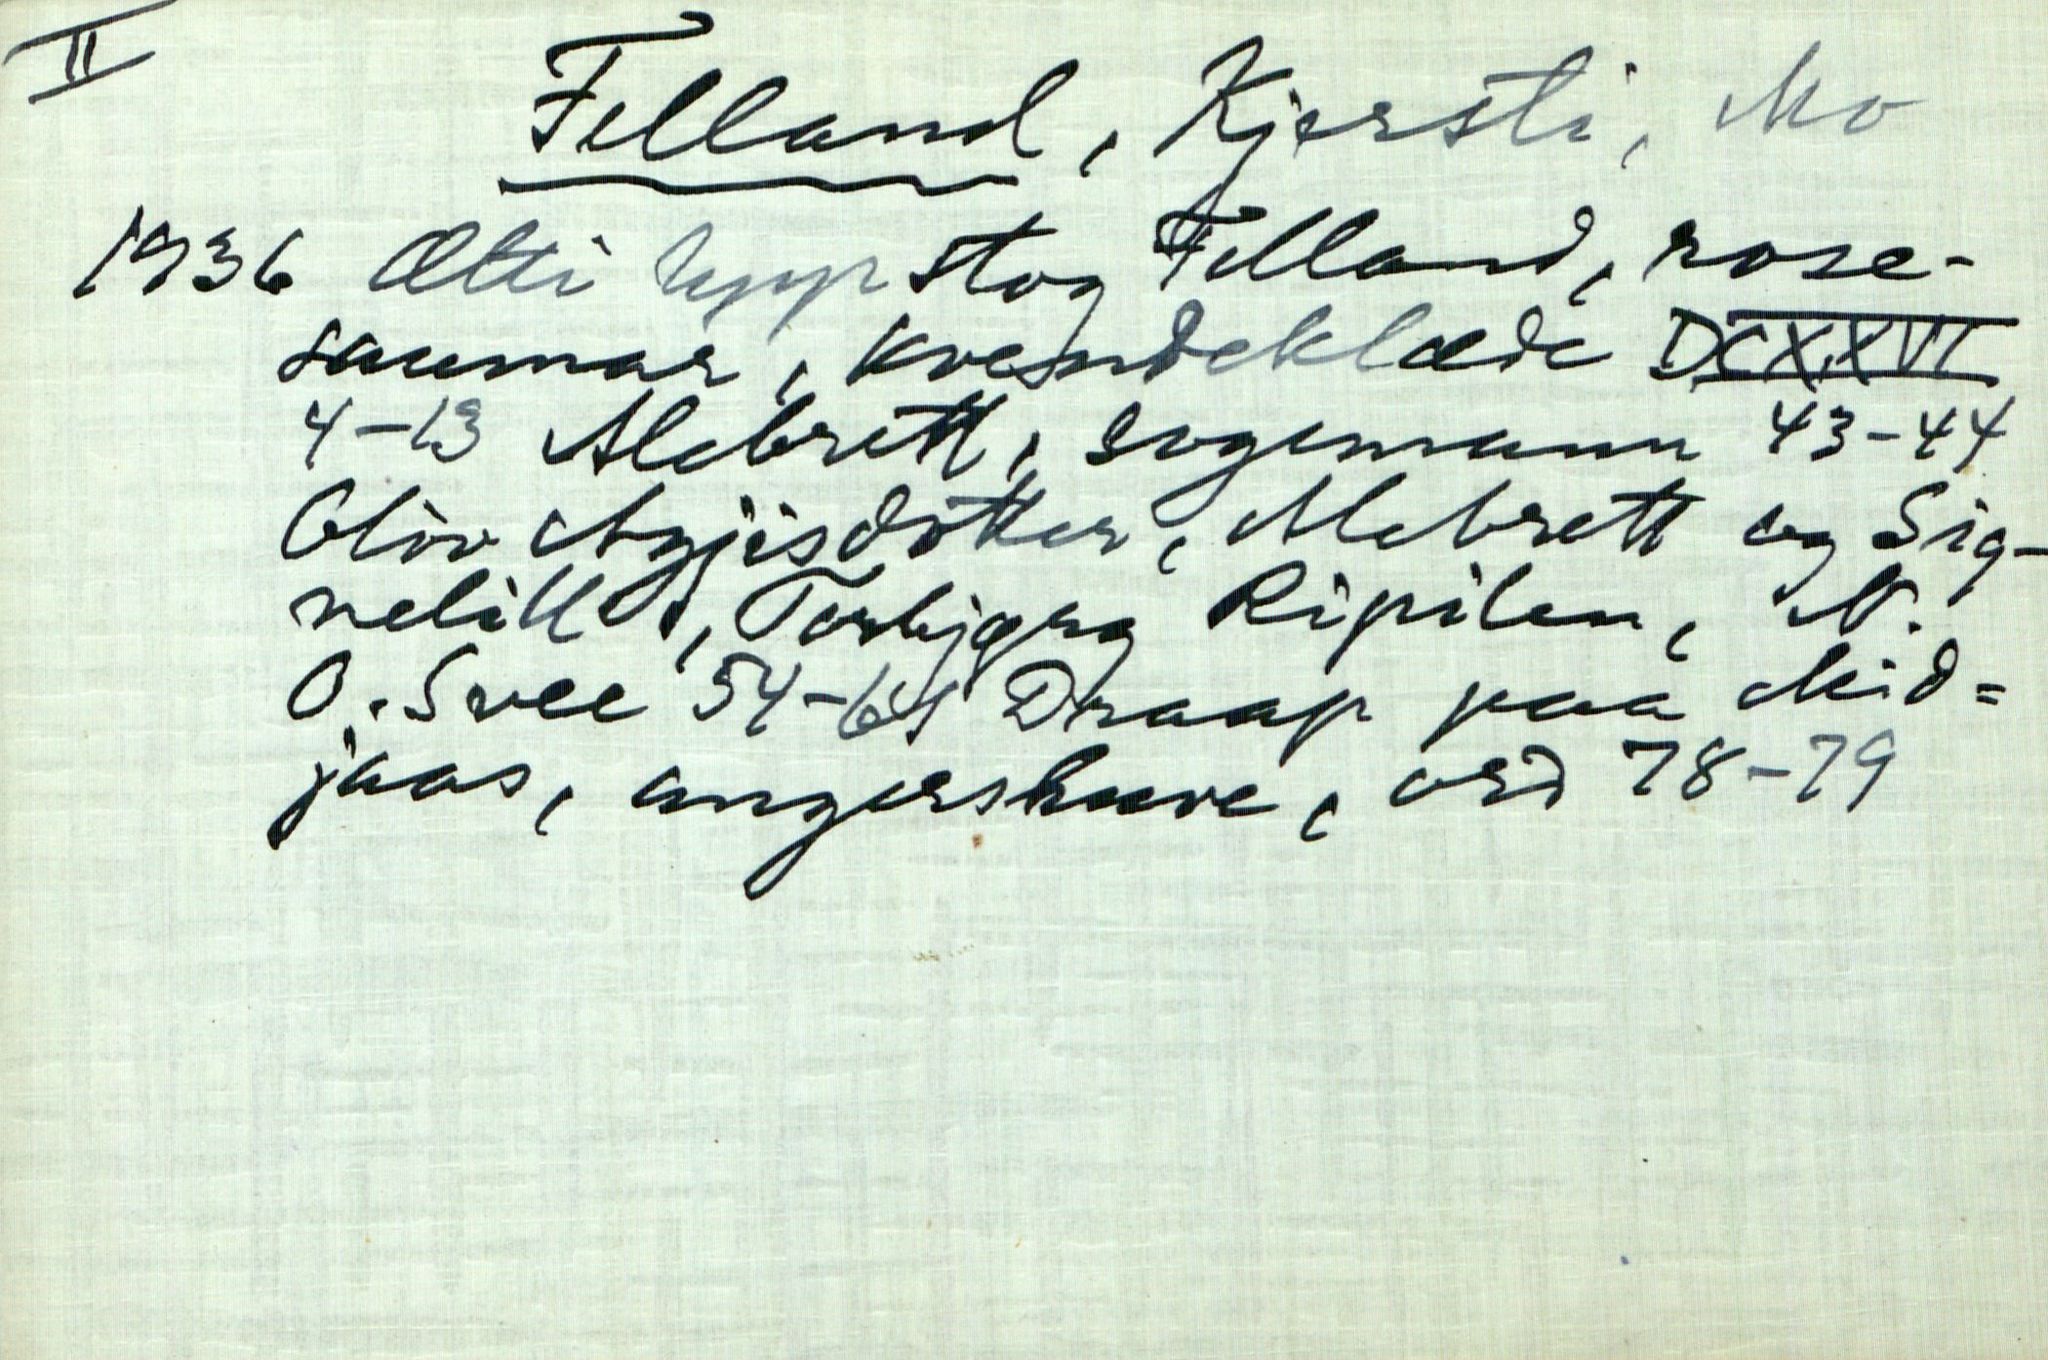 II
Felland, Kjersti, Mo
1936 Ætti uppstog Felland, rose-
saumar, kvendeklæde DCXXVI
4-13 Alebrett, sogemann 43-44
Oliv Aagjisdotter, Alebrett og Sig-
nelill, Torbjørg Ripilen, N.
O. Svee 54-61 Draap paa Mid=
jaas, angershuve, ord 78-79